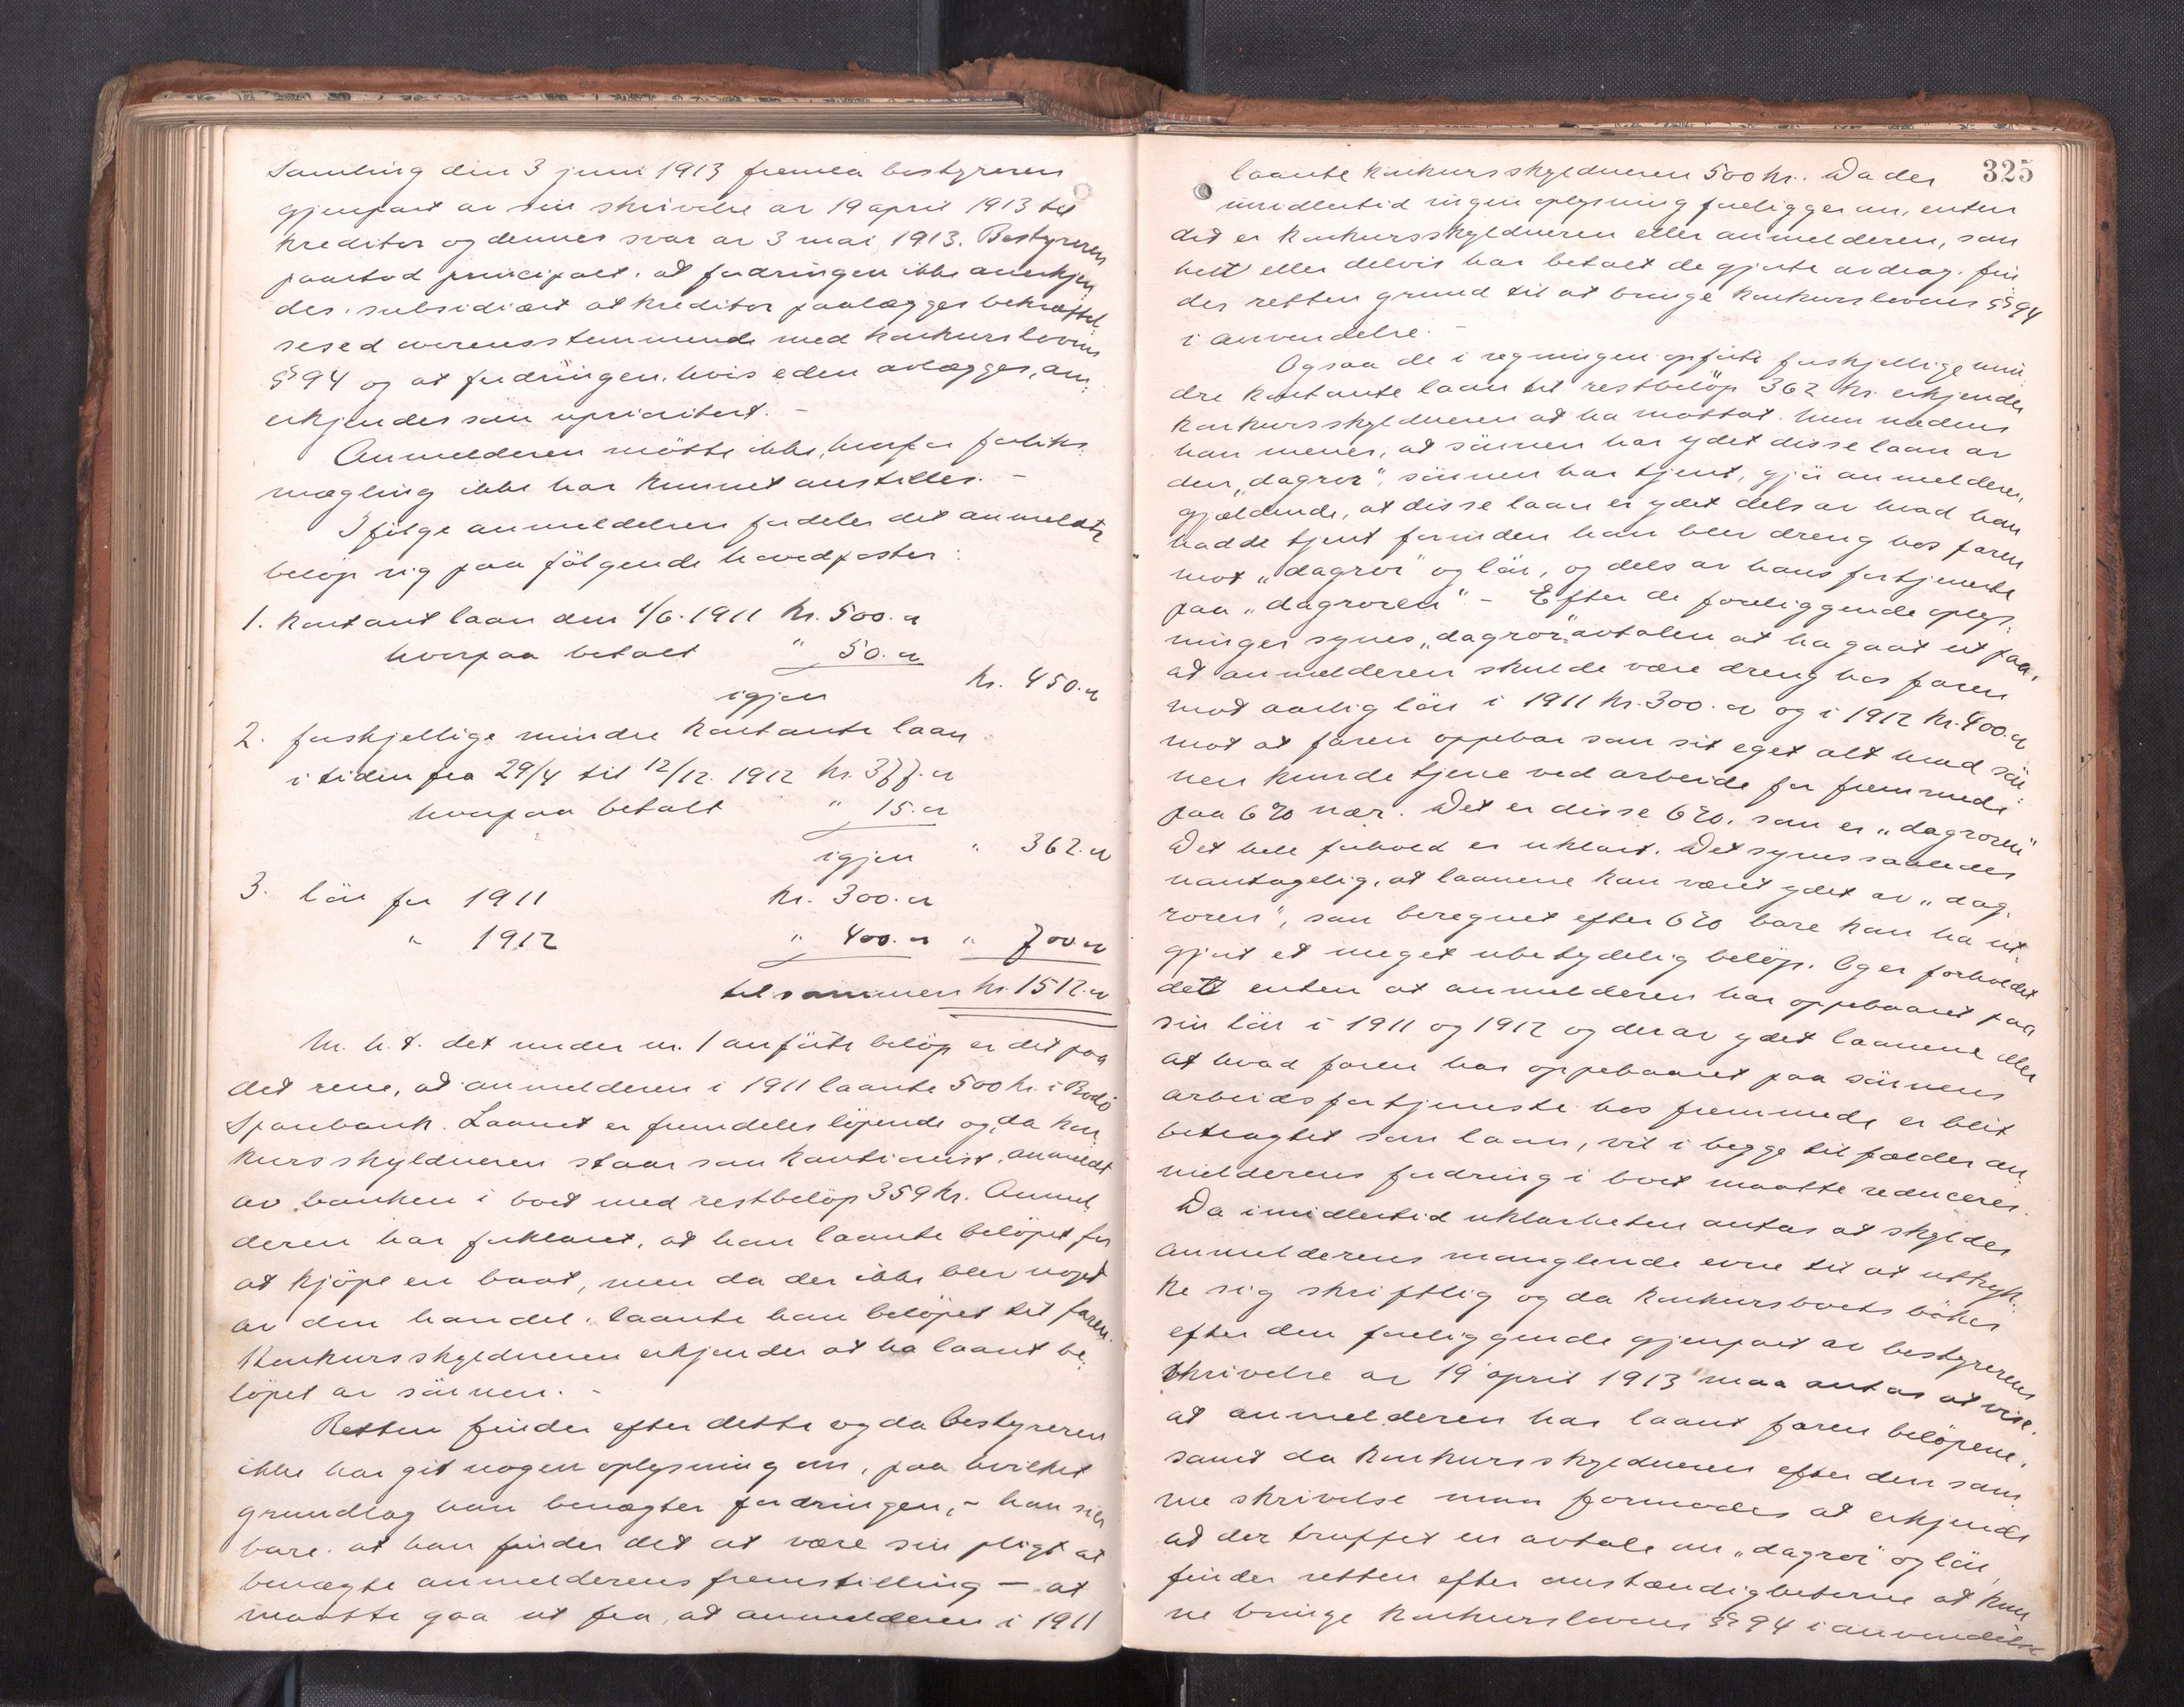 Samling den 3 juni 1913 fremla bestyreren
gjenpart av sin skrivelse av 19 april 1913 til
kreditor og dennes svar av 3 mai 1913. Bestyreren
paastod principalt, at fordringen ikke anerkjen
des, subsidiært at kreditor paalægges bekræftel
sesed overensstemmende med konkurslovens
§ 94 og at fordringen, hvis eden avlægges, an
erkjendes som uprioritert. -
Anmelderen mötte ikke, hvorfor forliks
mægling ikke har kunnet anstilles. -
Ifölge anmeldelsen fordeler det anmeldte
belöp sig paa fölgende hovedposter:
1. Kontant laan den 1/6. 1911 kr. 500.00
hvorpaa betalt " 50.00
igjen kr. 450.00
2. forskjellige mindre kontante laan
i tiden fra 29/4 til 12/12. 1912 kr. 377.00
hvorpaa betalt " 15.00
igjen " 362.00
3. lön for 1911 kr. 300.00
" 1912 " 400.00 " 700.00
tilsammen kr. 1512.00
M. h. t. det under nr. 1 anförte belöp er det paa
det rene, at anmelderen i 1911 laante 500 kr. i Bodö
Sparebank. Laanet er fremdeles löpende og, da kon
kursskyldneren staar som kautionist, anmeldt
av banken i boet med restbelöp 359 kr. Anmel
deren har forklaret, at han laante belöpet for
at kjöpe en baat, men da der ikke blev noget
av den handel, laante han belöpet til faren.
Konkursskyldneren erkjender at ha laant be
löpet av sönnen. -
Retten finder efter dette og da bestyreren
ikke har git nogen oplysning om, paa hvilket
grundlag han benægter fordringen, - han sier
bare at han finder det at være sin pligt at
benægte anmelderens fremstilling - at
maatte gaa ut fra, at anmelderen i 1911
325
laante konkursskyldneren 500 kr. Da der
imidlertid ingen oplysning foreligger om, enten
det er konkursskyldneren eller anmelderen, som
helt eller delvis har betalt de gjorte avdrag, fin
der retten grund til at bringe konkurslovens § 94
i anvendelse. -
Ogsaa de i regningen opförte forskjellige min
dre kontante laan til restbelöp 362 kr. erkjender
konkursskyldneren at ha mottat. Men medens
han mener, at sönnen har ydet disse laan av
den "dagror", sönnen har tjent, gjör anmelderen
gjældende, at disse laan er ydet dels av hvad han
hadde tjent forinden han blev dreng hos faren
mot "dagror" og lön, og dels av hans fortjeneste
paa "dagroren" - Efter de foreliggende oplys
ninger synes "dagror" avtalen at ha gaat ut paa,
at anmelderen skulde være dreng hos faren
mot aarlig lön i 1911 kr. 300.00 og i 1912 kr. 400.00
mot at faren oppebar som sit eget alt hvad sön
nen kunde tjene ved arbeide for fremmede
paa 6 % nær. Det er disse 6 %, som er "dagroren"
Det hele forhold er uklart. Det synes saaledes
uantagelig, at laanene kan været ydet av "dag
roren", som beregnet efter 6 % bare kan ha ut
gjort et meget ubetydelig belöp. Og er forholdet
det enten at anmelderen har oppebaaret paa
sin lön i 1911 og 1912 og derav ydet laanene eller
at hvad faren har oppebaaret paa sönnens
arbeidsfortjeneste hos fremmede er blit
betragtet som laan, vil i begge tilfælder an
melderens fordring i boet maatte reduceres.
Da imidlertid uklarheten antas at skyldes
anmelderens manglende evne til at uttryk
ke sig skriftlig og da konkursboets böker
efter den foreliggende gjenpart av bestyrerens
skrivelse av 19 april 1913 maa antas at vise,
at anmelderen har laant faren belöpene,
samt da konkursskyldneren efter den sam
me skrivelse maa formodes at erkjende
at der truffet en avtale om "dagror" og lön,
finder retten efter omstændigheterne at kun
ne bringe konkurslovens § 94 i anvendelse